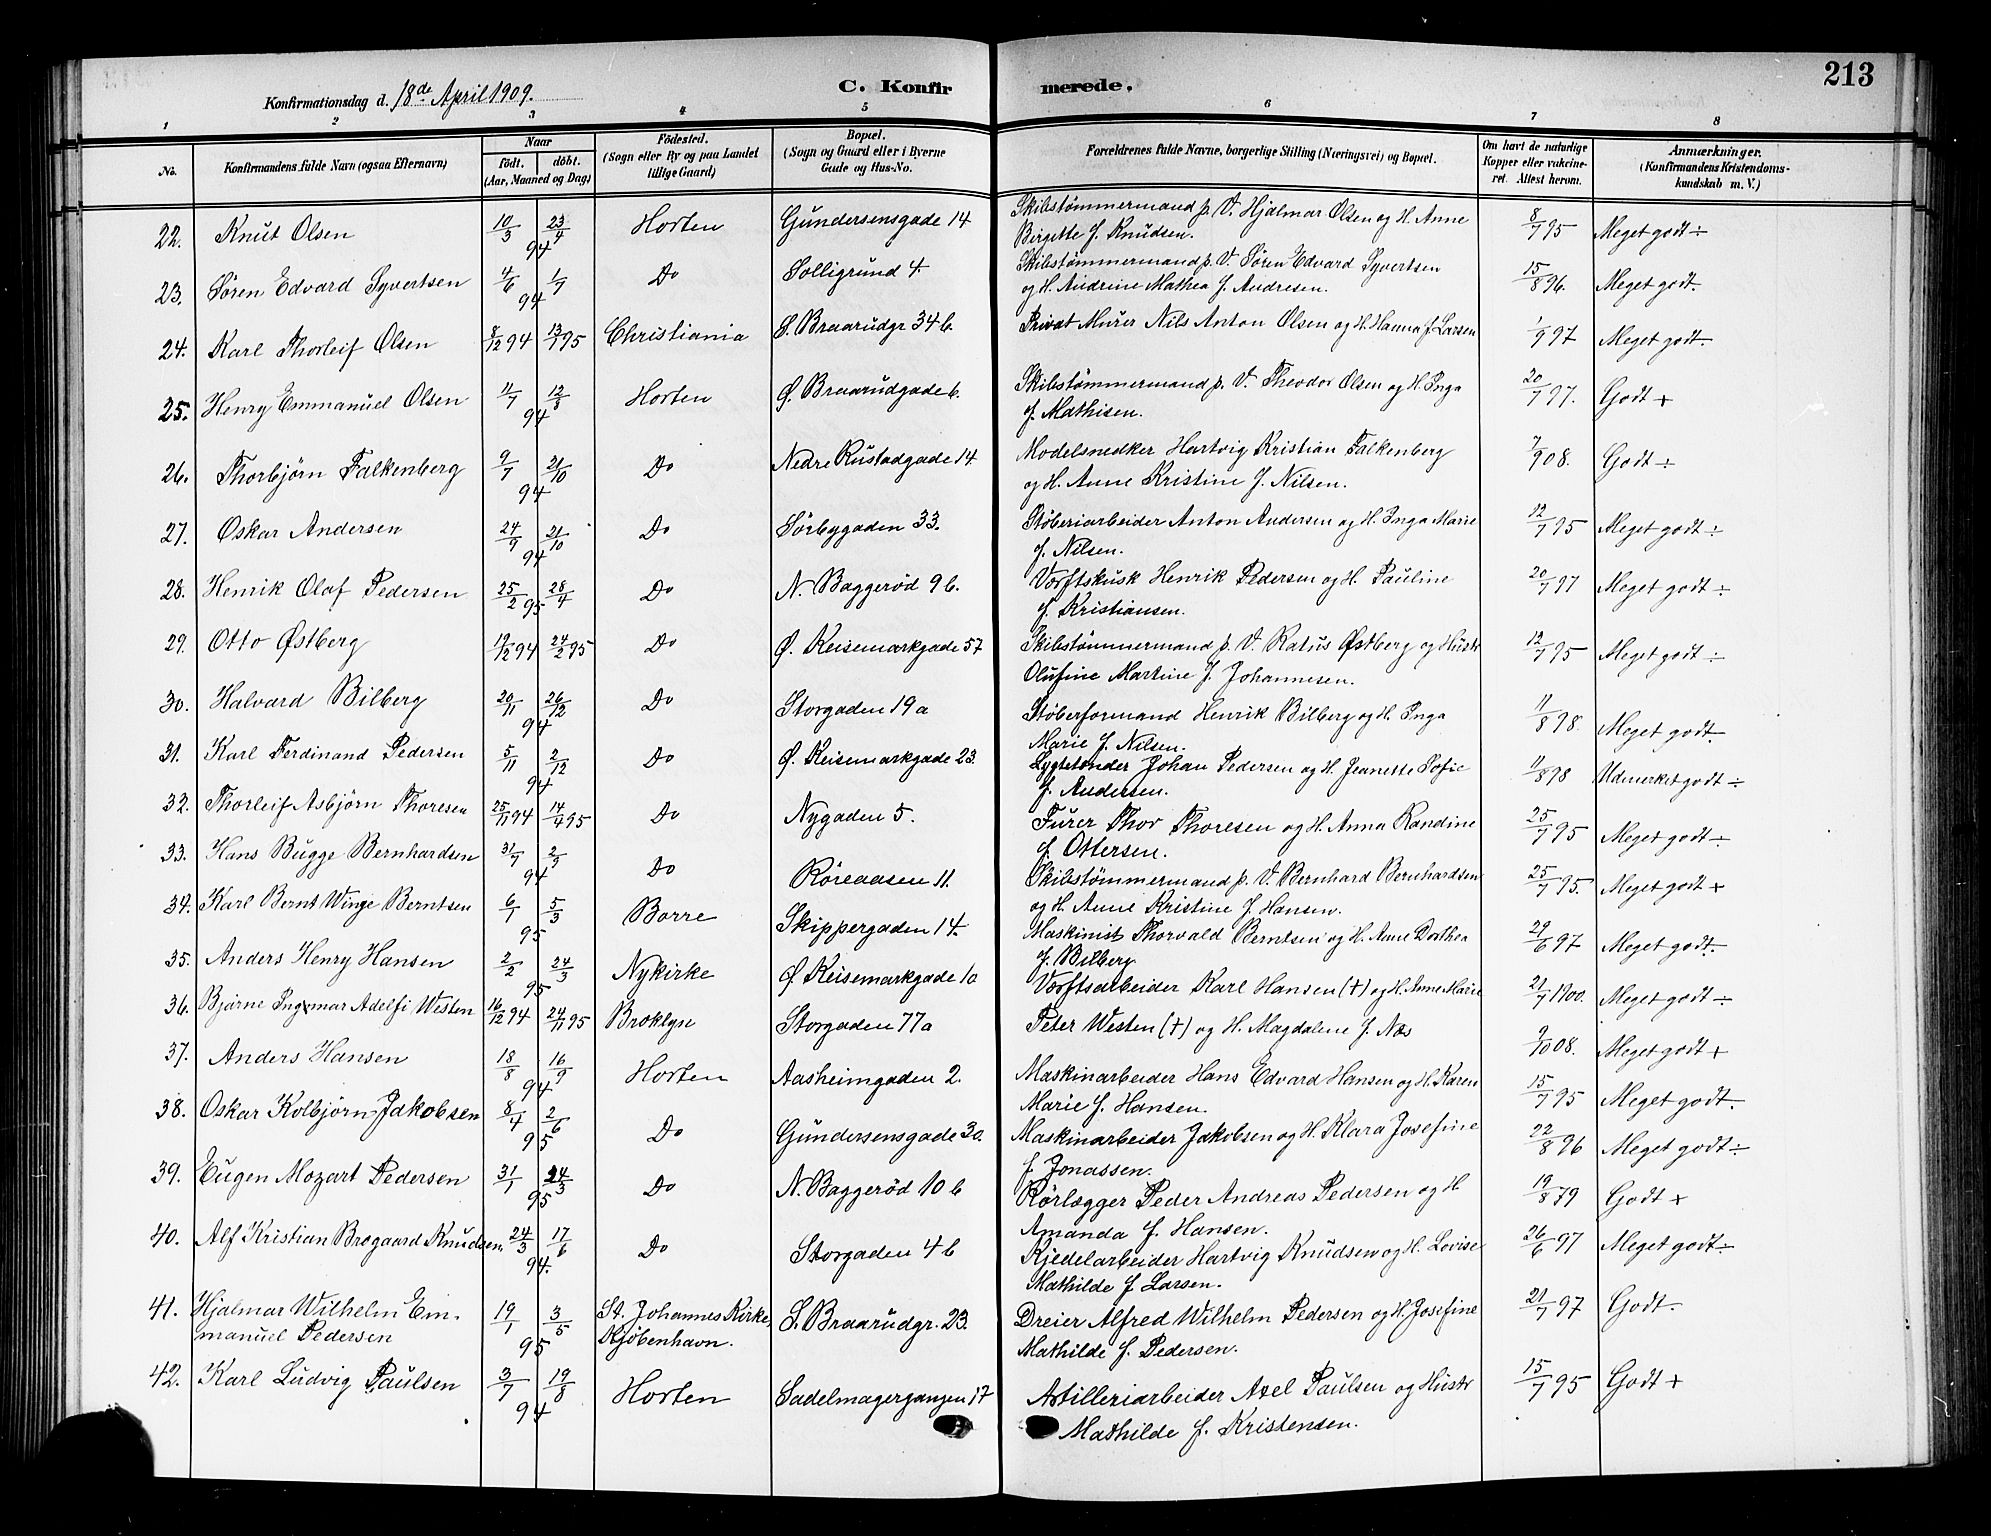 213
Konfirmationsdag d. 18de April 1909.
C. Konfir
merede.
1 2 3 4 5 6 7 8
No. Konfirmandens fulde Navn (ogsaa Efternavn) Naar født. døbt. (Aar, Maaned og Dag) Fødested. (Sogn eller By og paa Landet tillige Gaard) Bopæl. (Sogn og Gaard eller i Byerne Gade og Hus-No. Forældrenes fulde Navne, borgerlige Stilling (Næringsvei) og Bopæl. Om havt de naturlige Kopper eller vakcineret. Attest herom. Anmærkninger. (Konfirmandens Kristendomskundskab m. V.)
22. Knut Olsen 10/3 23/4 94 Horten Gundersensgade 14 Skibstømmermand p. V. Hjalmar Olsen og H. Anne 8/7 95 Meget godt ÷
Birgette f. Knudsen.
23. Søren Edvard Syvertsen 4/6 1/7 94 Do Solligrund 4. Skibstømmermand p. V. Søren Edvard Syvertsen 15/8 96. Meget godt.
og H. Andrine Mathea f. Andresen.
24. Karl Thorleif Olsen 8/12 94 13/1 95 Christiania S. Braarudgr 34 b. Privat Murer Nils Anton Olsen og H. Hanna f. Larsen 1/9 97 Meget godt.
25. Henry Emmanuel Olsen 11/7 12/8 94 Horten Ø. Braarudgade 6. Skibstømmermand p. V. Theodor Olsen og H. Inga 20/7 97. Godt +
f. Mathisen.
26. Thorbjørn Falkenberg 9/7 21/10 94 Do Nedre Rustadgade 14. Modelsnedker Hartvig Kristian Falkenberg 7/9 08. Godt ÷
og H. Anne Kristine f. Nilsen.
27. Oskar Andersen 24/9 21/10 94 Do Sørbygaden 33. Støberiarbeider Anton Andersen og H. Inga Marie 12/7 95 Meget godt ÷
f. Nilsen.
28. Henrik Olaf Pedersen 25/2 28/4 95 Do N. Baggerød 9 b. Værftskusk Henrik Pedersen og H. Pauline 20/7 97 Meget godt ÷
f. Kristiansen.
29. Otto Østberg 19/12 94 24/2 95 Do Ø. Keisemarkgade 57 Skibstømmermand p. V. Ratus Østberg og Hustr 12/7 95 Meget godt ÷
Olufine Martine f. Johannesen.
30. Halvard Bilberg 20/11 26/12 94 Do Storgaden 19 a Støberformand Henrik Bilberg og H. Inga 11/8 98 Meget godt.
Marie f. Nilsen.
31. Karl Ferdinand Pedersen 5/11 2/12 94 Do Ø. Keisemarkgade 23. Lygtetønder Johan Pedersen og H. Jeanette Sofie 11/8 98 Udmerket godt ÷
f. Andersen.
32. Thorleif Asbjørn Thoresen 25/11 94 14/4 95 Do Nygaden 5. Furer Thor Thoresen og H. Anna Randine 25/7 95 Meget godt ÷
f. Ottersen.
33. Hans Bugge Bernhardsen 31/7 2/9 94 Do Røreaasen 11. Skibstømmermand p. V. Bernhard Bernhardsen 25/7 95. Meget godt +
og H. Anne Kristine f. Hansen.
34. Karl Bernt Winge Berntsen 6/1 5/3 95 Borre Skippergaden 14. Maskinist Thorvald Berntsen og H. Anne Dorthea 29/6 97 Meget godt.
f. Bilberg
35. Anders Henry Hansen 2/2 24/3 95 Nykirke Ø. Keisemarkgade 10 Værftsarbeider Karl Hansen (†) og H. Anne Marie 21/7 1900. Meget godt ÷
36. Bjarne Ingemar Adelfi Westen 16/12 94 24/11 95 Broklyn Storgaden 77 a Peter Westen (†) og H. Magdalene f. Næs 9/10 08. Meget godt +
37. Anders Hansen 18/8 16/9 94 Horten Aasheimgaden 2. Maskinarbeider Hans Edvard Hansen og H. Karen 15/7 95 Meget godt.
Marie f. Hansen.
38. Oskar Kolbjørn Jakobsen 8/4 2/6 95 Do Gundersensgade 30. Maskinarbeider Jakobsen og H. Klara Josefine 22/8 96 Meget godt ÷
f. Jonassen.
39. Eugen Mozart Pedersen 31/1 24/3 95 Do N. Baggerød 10 b Rørlægger Peder Andreas Pedersen og H 19/8 79 Godt +
Amanda f. Hansen.
40. Alf Kristian Brogaard Knudsen 24/3 17/6 94. Do Storgaden 4 b Kjedelarbeider Hartvig Knudsen og H. Lovise 26/6 97 Meget godt ÷
Mathilde f Larsen.
41. Hjalmar Wilhelm Em- 19/1 3/5 95 St. Johannes Kirke, S. Braarudgr. 23. Dreier Alfred Wilhelm Pedersen og H. Josefine 21/7 97 Godt -
manuel Pedersen Kjøbenhavn. Mathilde f. Pedersen.
42. Karl Ludvig Paulsen 3/7 19/8 94 Horten Sadelmagergangen 17 Artilleriarbeider Axel Paulsen og Hustr 15/7 95 Godt +
Mathilde f. Kristensen.